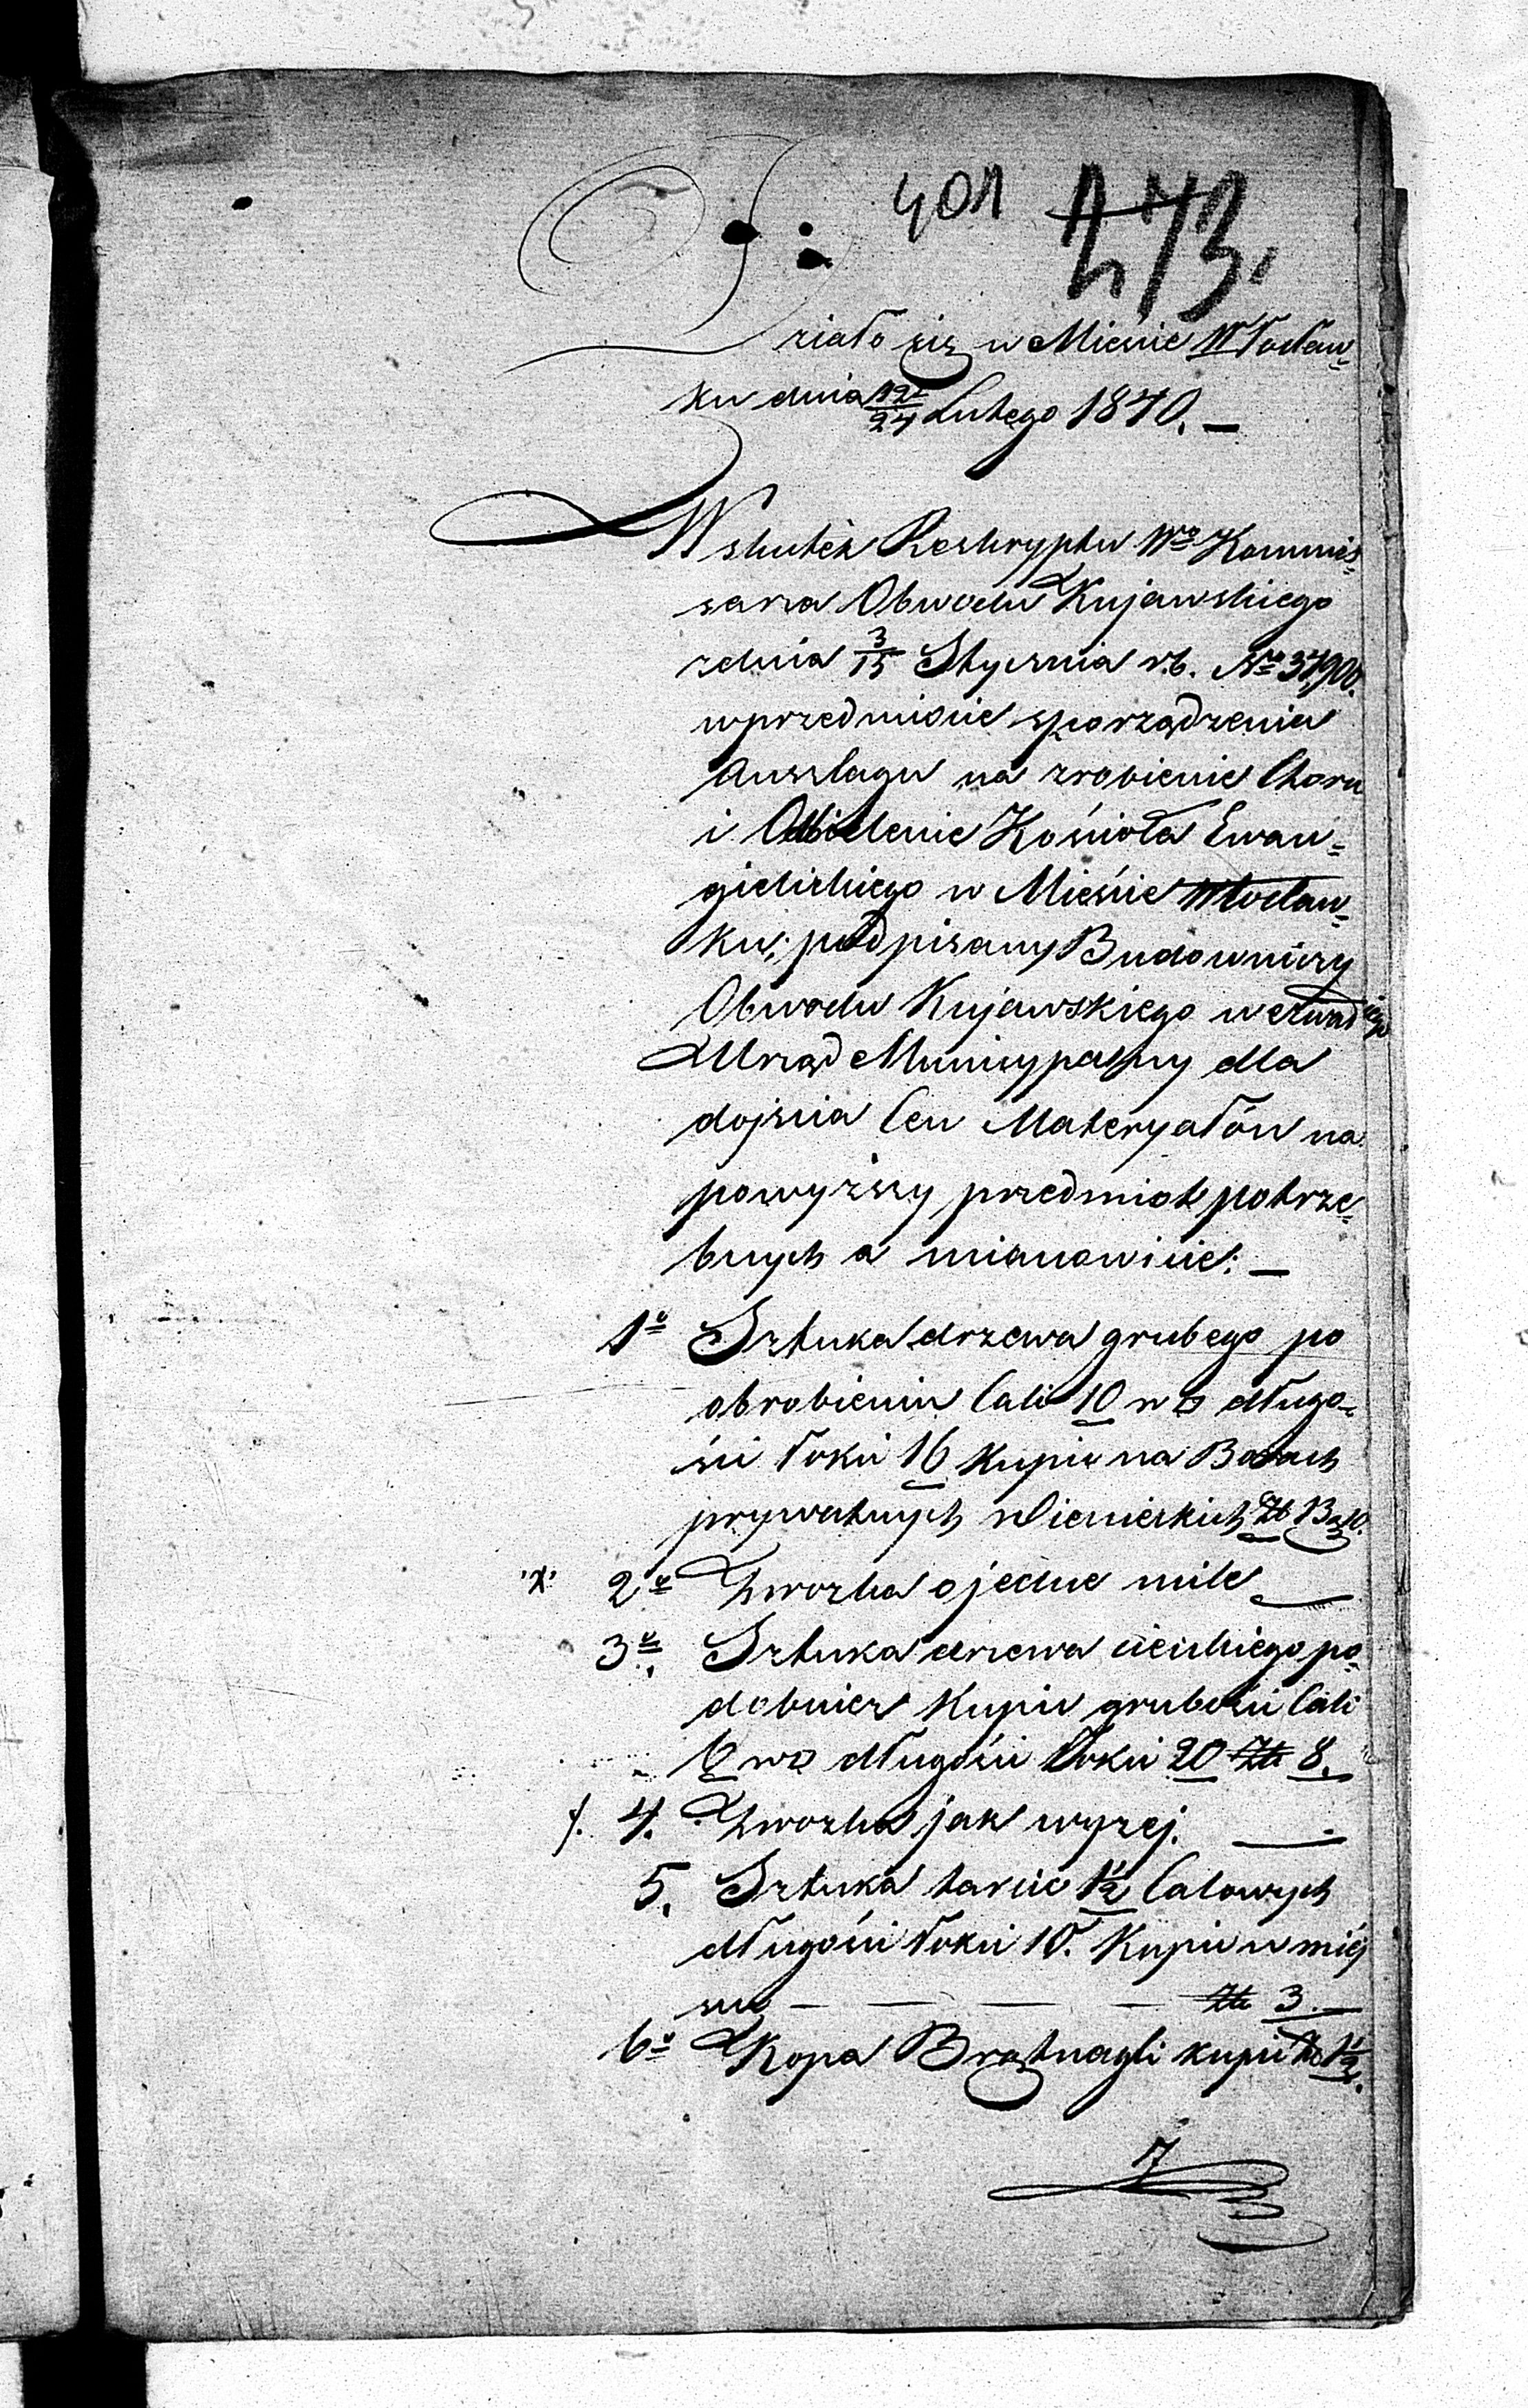 401 273.
Działo się w Mieście Włocław=
ku dnia 12/24 Lutego 1840. —
W skutek Reskryptu Wo Kommis=
sarza Obwodu Kujawskiego
z dnia 3/15 Stycznia r.b. No 37900.
w przedmiocie sporządzenia
Anszlagu na zrobienie Choru
i Obielenie Kościoła Ewan=
gielickiego w Mieście Włocław=
ku; podpisany Budowniczy
Obwodu Kujawskiego wezwał
Urząd Municypalny dla
dojścia Cen Materyałów na
powyższy przedmiot potrze=
bnych a mianowicie: —
1o Sztuka drzewa grubego po
obrobieniu Cali 10 w □ długo=
ści łokci 16 kupić na Borach
prywatnych Zł 13
2o Zwózka o jedne mile —
3o. Sztuka drzewa cieńkiego po=
dobnież kupić grubości Cali
6 w □ długości łokci 20 Zł 8.
4. Zwózka jak wyżej. —
5. Sztuka tarcic 1½ Calowych
długości łokci 10. Kupić w miéj
scu — — — — Zł 3. —
6o Kopa Bratnagli kupić Zł 1½.
7